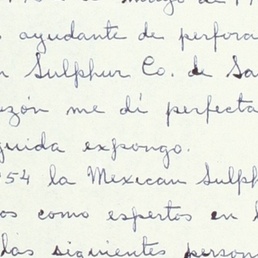 ayudante de perfora
Sulphur Co. de Sa
zón me dí perfecta
guida expongo.
54 la Mexican Sulph
os como espertos en
las siguientes person